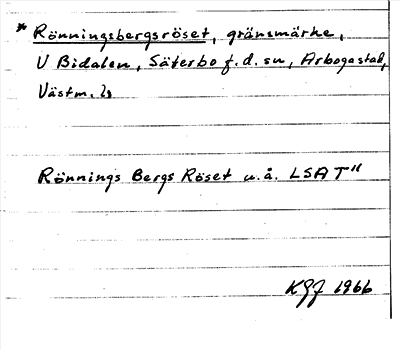 * Rönningsbergsröset, gränsmärke,
V Bidalen, Säterbo f.d. sn, Arboga stad,
Västm. l.
Rönnings Bergs Röset u.å. LSA T"
KGJ 1966